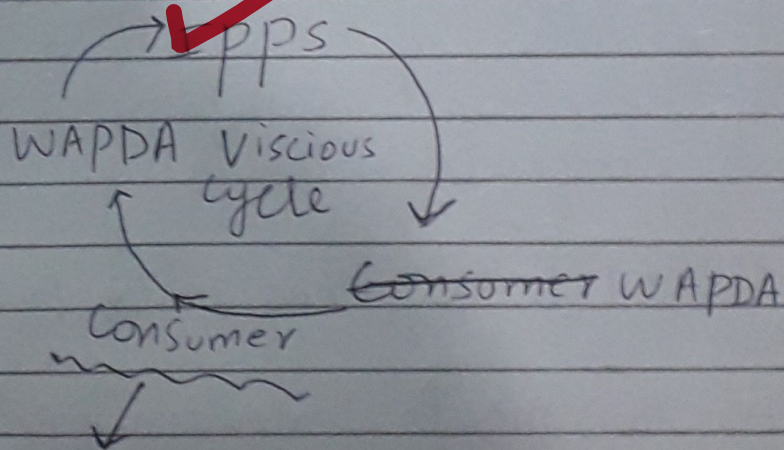 IPPS
WAPDA Viscious
Cycle
~~Consumer~~ WAPDA
Consumer